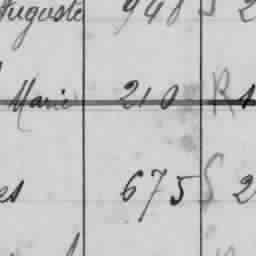 Auguste 948 S 2
Marie 210 R 1
es 675 S 2